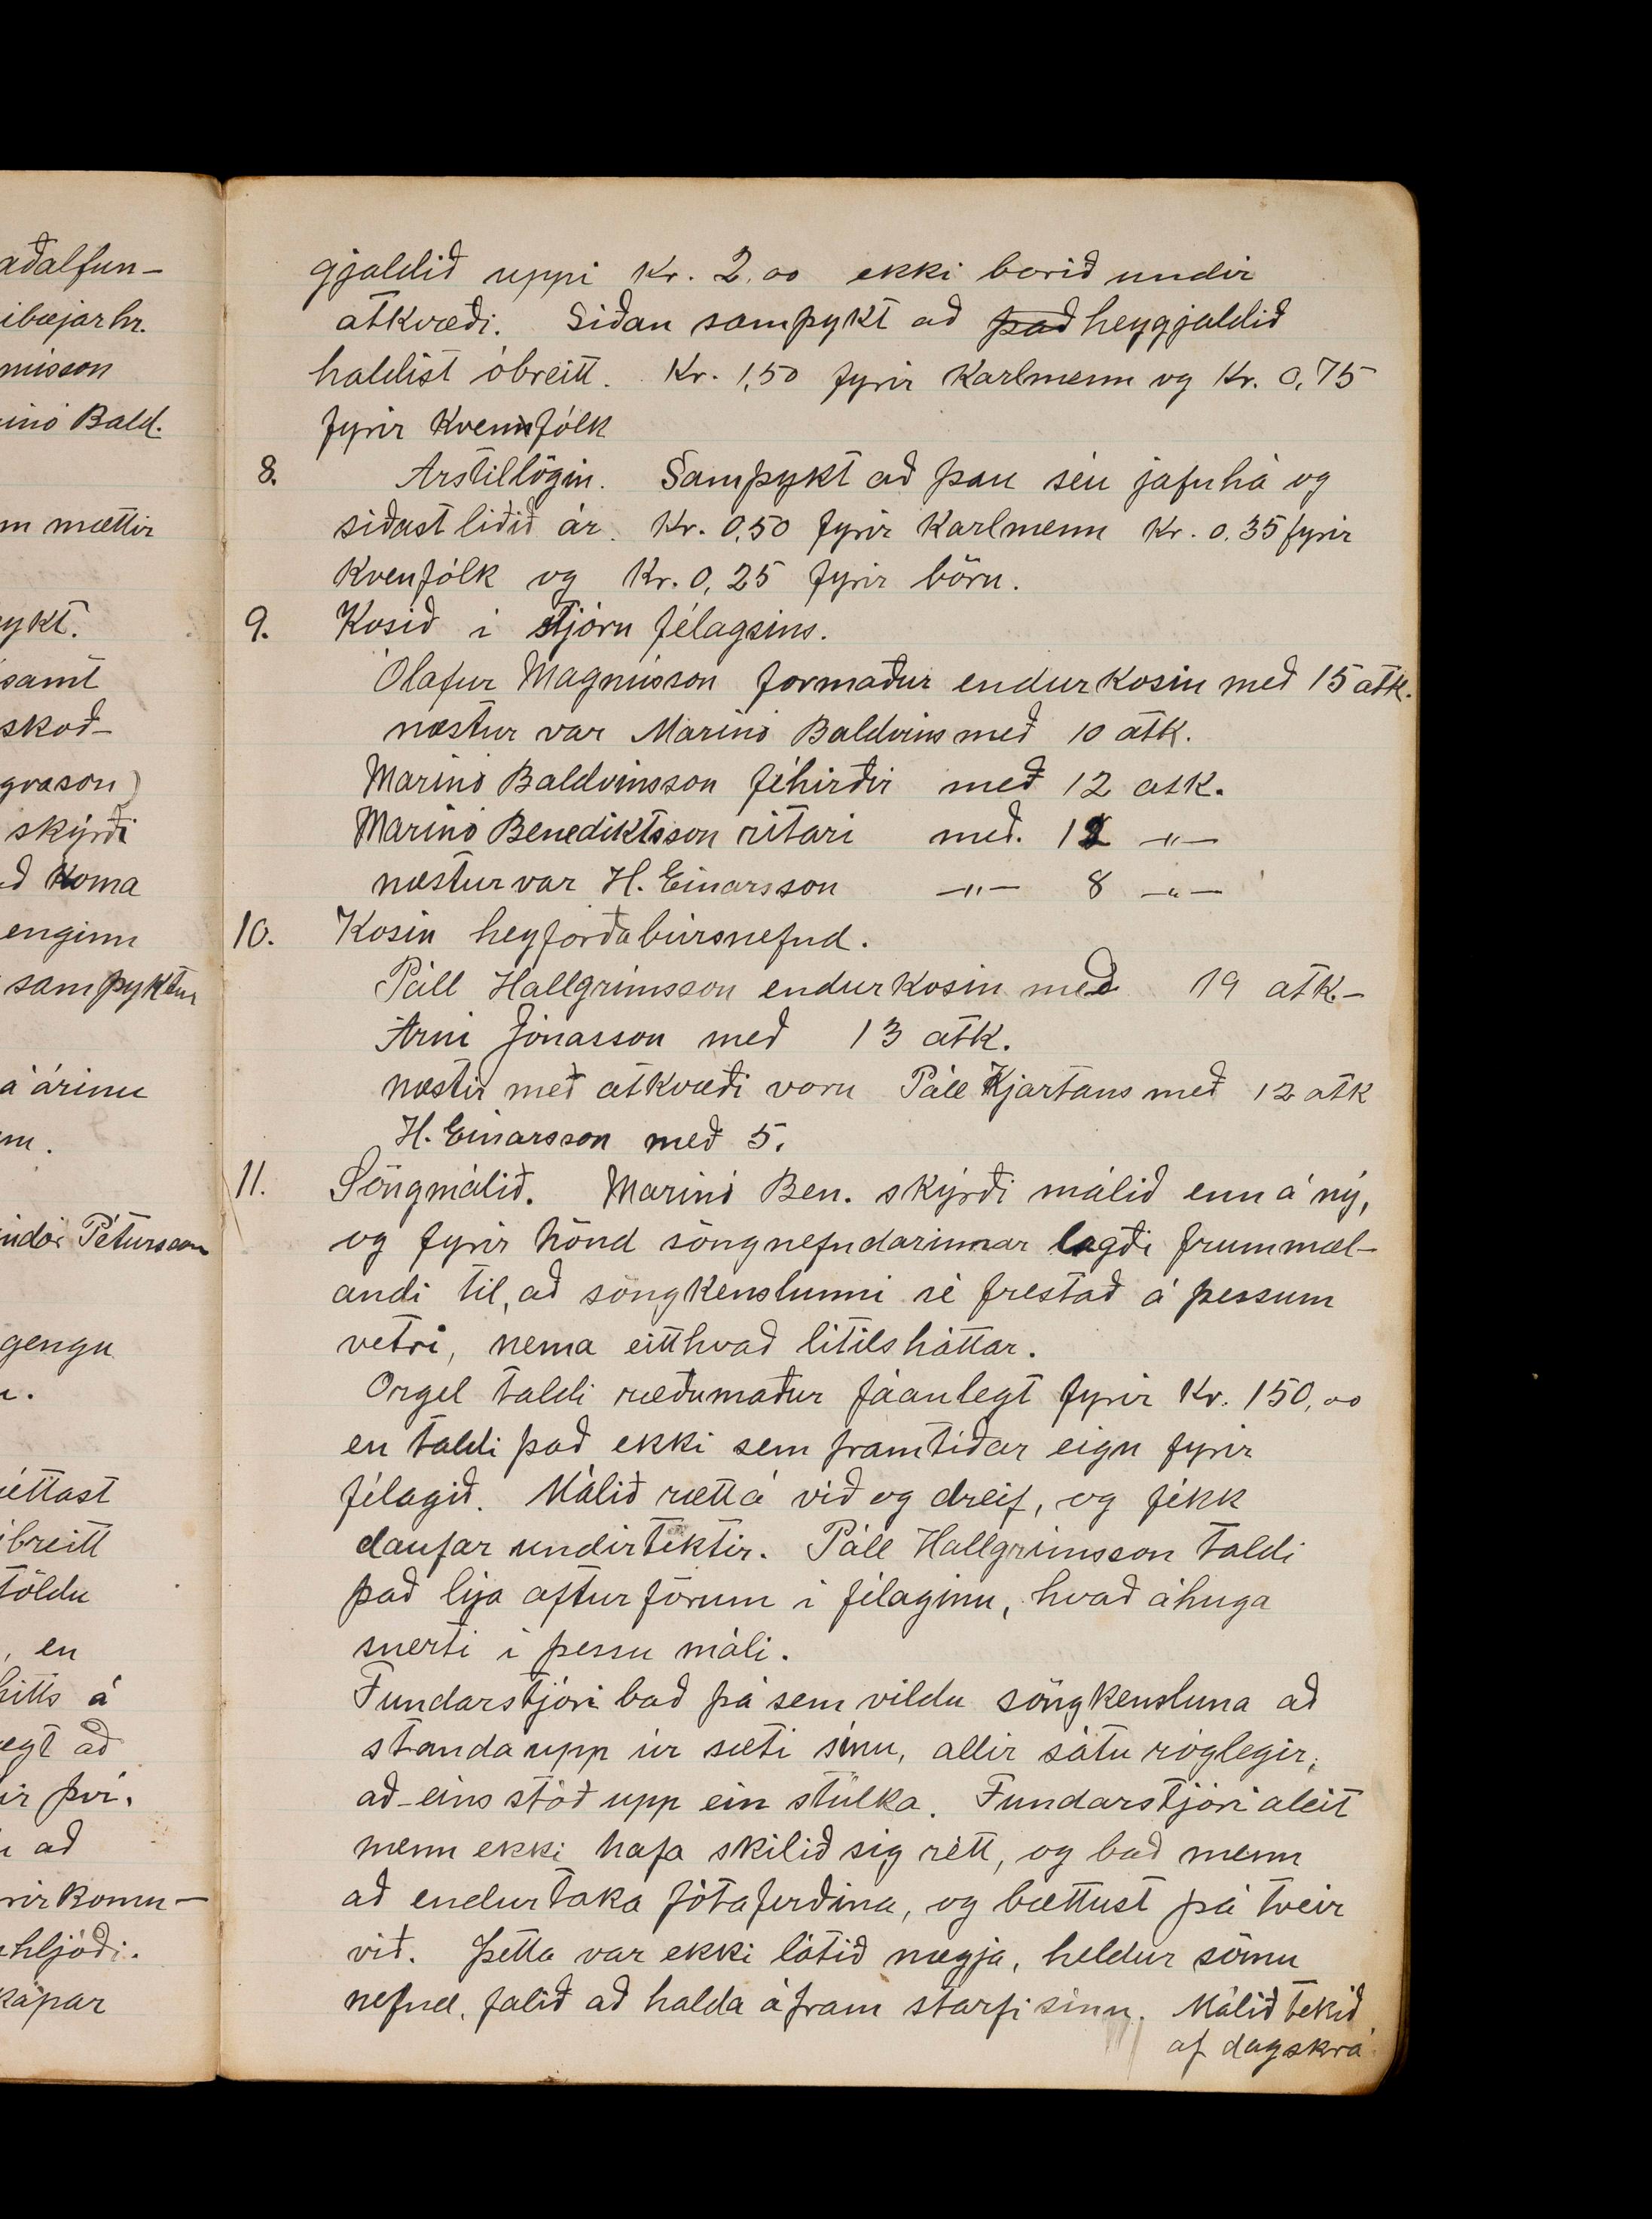 aðalfun-
ibæjarhr.
nússon
inó Bald.
m mættir
ykt.
samt
skoð-
gvason)
skýrði
ð koma
enginn
samþyktur
á árinu
m.
indór Pétursson
gengu
éttast
breitt
töldu
, en
hitts á
egt að
ir því.
að
rirkomu-
hljóði.
kápar
gjaldið uppi kr. 2.00 ekki borið undir
atkvæði. Síðan samþykt að það heygjaldið
haldist óbreitt. Kr. 1,50 fyrir karlmenn og kr. 0,75
fyrir kvennfólk
8. Árstillögin. Samþykt að þau séu jafnhá og
síðastliðið ár. Kr. 0,50 fyrir karlmenn kr. 0.35 fyrir
kvenfólk og kr. 0,25 fyrir börn.
9. Kosið í stjórn félagsins.
Ólafur Magnússon formaður endurkosin með 15 atk.
næstur var Marinó Baldvins með 10 atk.
Marinó Baldvinsson féhirðir með 12 atk.
Marinó Benediktsson ritari með. 12 -"-
næstur var H. Einarsson -"- 8 -"-
10. Kosin heyforðabúrsnefnd.
Páll Hallgrímsson endurkosin með 19 atk.-
Árni Jónasson með 13 atk.
næstir með atkvæði voru Páll Kjartans með 12 atk
H. Einarsson með 5.
11. Söngmálið. Marinó Ben. skýrði málið enn á ný,
og fyrir hönd söngnefndarinnar lagði frummæl-
andi til, að söngkenslunni sé frestað á þessum
vetri, nema eitthvað lítilsháttar.
Orgel taldi ræðumaður fáanlegt fyrir kr. 150,00
en taldi það ekki sem framtíðar eign fyrir
félagið. Málið rætt á við og dreif, og fékk
daufar undirtektir. Páll Hallgrímsson taldi
það lýsa afturförum í félaginu, hvað áhuga
snerti í þessu máli.
Fundarstjóri bað þá sem vildu söngkensluna að
standa upp úr sæti sínu, allir sátu róglegir,
að-eins stóð upp ein stúlka. Fundarstjóri áleit
menn ekki hafa skilið sig rétt, og bað menn
að endurtaka fótaferðina, og bættust þá tveir
við. Þetta var ekki látið nægja, heldur sömu
nefnd, falið að halda áfram starfi sínu. Málið tekið
af dagskrá